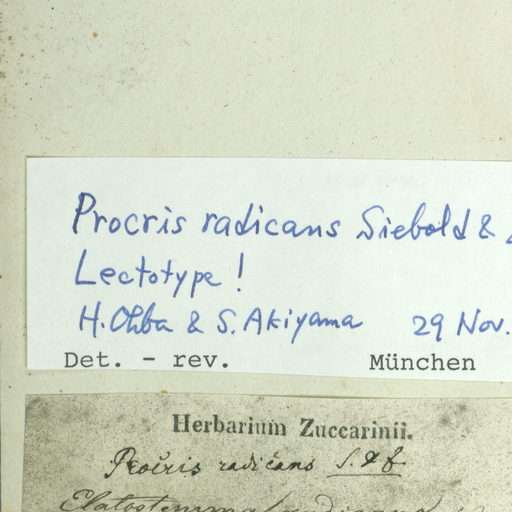 Procris radicans Siebold &
Lectotype!
H. Ohba & S. Akiyama 29 Nov.
Det. - rev. München
Herbarium Zuccarinii.
Procris radicans S. & Z.
Elatostemma radicans